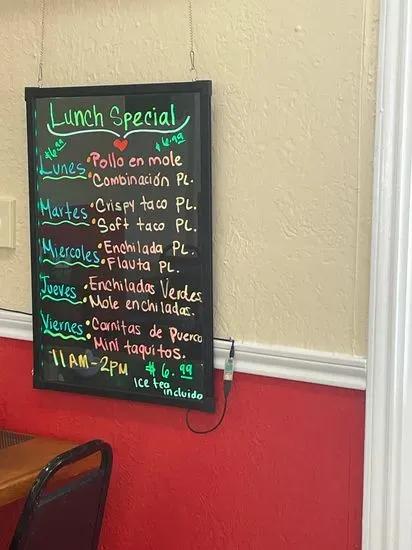 Lunch Special
$6.99 $6.99
Lunes • Pollo en mole
• Combinación PL.
Martes • Crispy taco PL.
• Soft taco PL.
Miercoles • Enchilada PL.
• Flauta PL.
Jueves • Enchiladas Verdes
• Mole enchiladas.
Viernes • Carnitas de Puerco
• Mini taquitos.
11AM-2PM $6.99
Ice tea
incluido